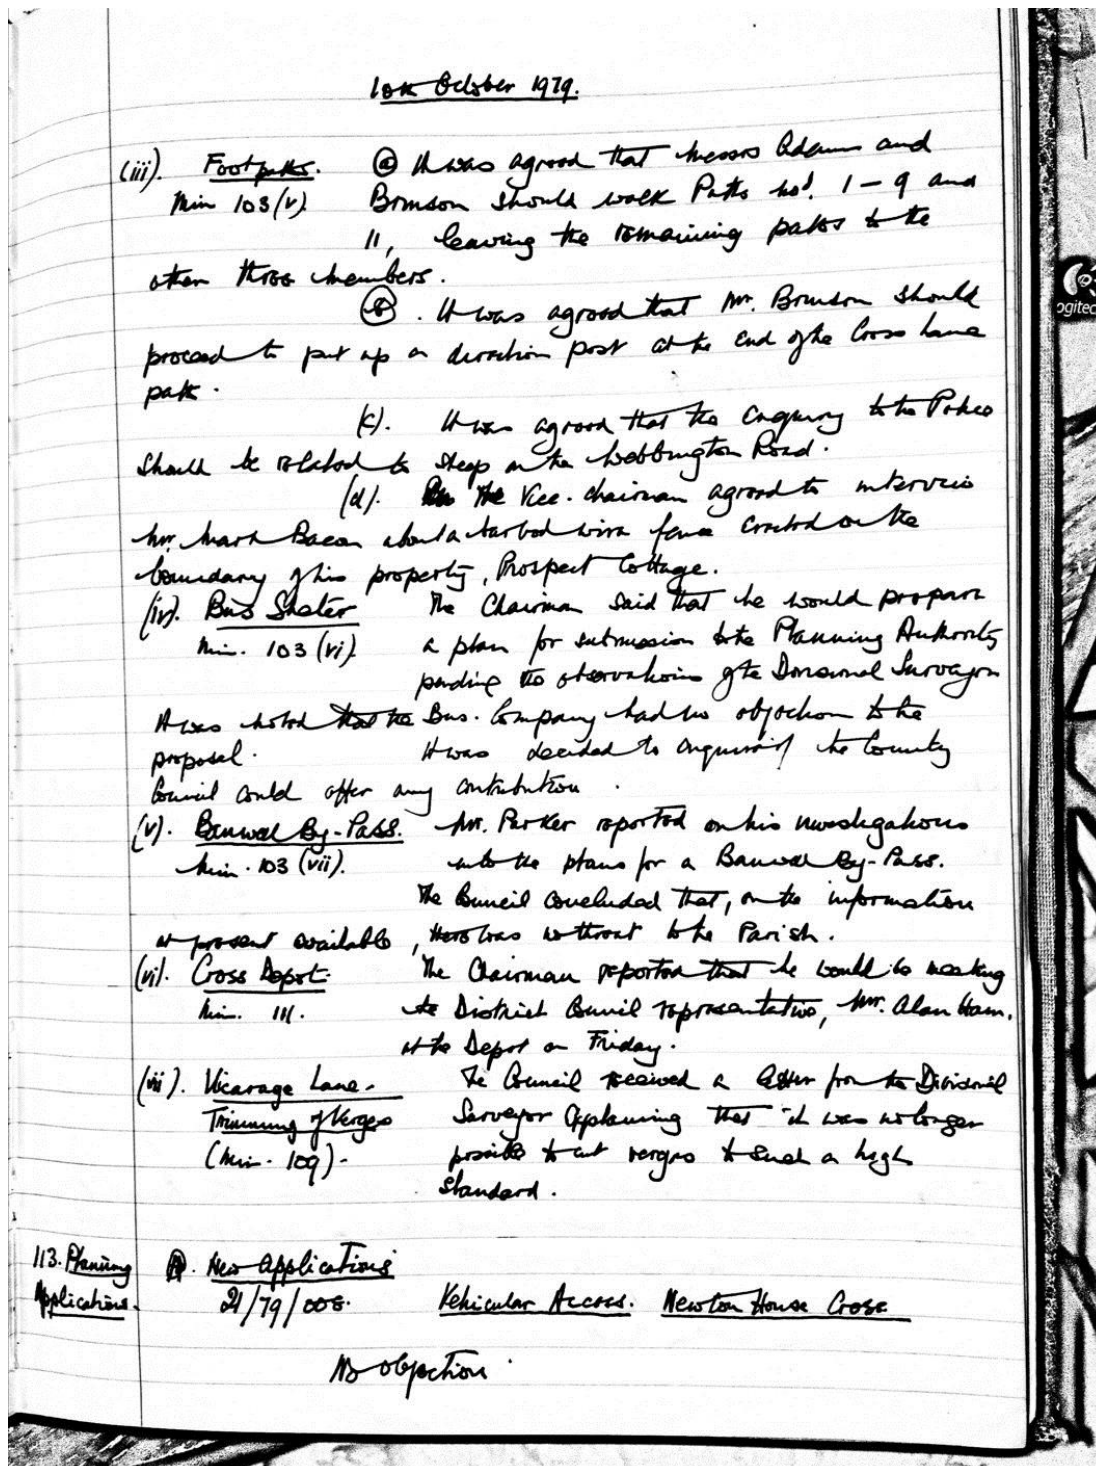 10th October 1979.
(iii). Footpaths. (a) It was agreed that Messrs Adams and
Min 103(v). Brunson should walk Paths nos. 1 - 9 and
11, leaving the remaining paths to the
other three members.
(b). It was agreed that Mr. Brunson should
proceed to put up a direction post at the end of the Cross Lane
path.
(c). It was agreed that the enquiry to the Police
should be related to steps on the Webbington Road.
(d). The Vice-Chairman agreed to interview
Mr. Mark Bacon about a barbed wire fence erected on the
boundary of his property, Prospect Cottage.
(iv). Bus Shelter The Chairman said that he would prepare
Min. 103 (vi). a plan for submission to the Planning Authority
pending the observations of the Divisional Surveyor
It was noted that the Bus. Company had no objection to the
proposal. It was decided to enquire if the County
Council could offer any contribution.
(v). Banwell By-Pass. Mr. Parker reported on his investigations
Min. 103 (vii). into the plans for a Banwell By-Pass.
The Council concluded that, on the information
at present available, there was no threat to the Parish.
(vi). Cross Depot. The Chairman reported that he would be meeting
Min. 111. the District Council representative, Mr. Alan Ham,
at the Depot on Friday.
(vii). Vicarage Lane - The Council received a letter from the Divisional
Trimming of Verges Surveyor explaining that it was no longer
(Min. 109) - possible to cut verges to such a high
standard.
113. Planning A. New Applications
Applications. 21/79/008. Vehicular Access. Newton House Cross
No objection.
ogitec